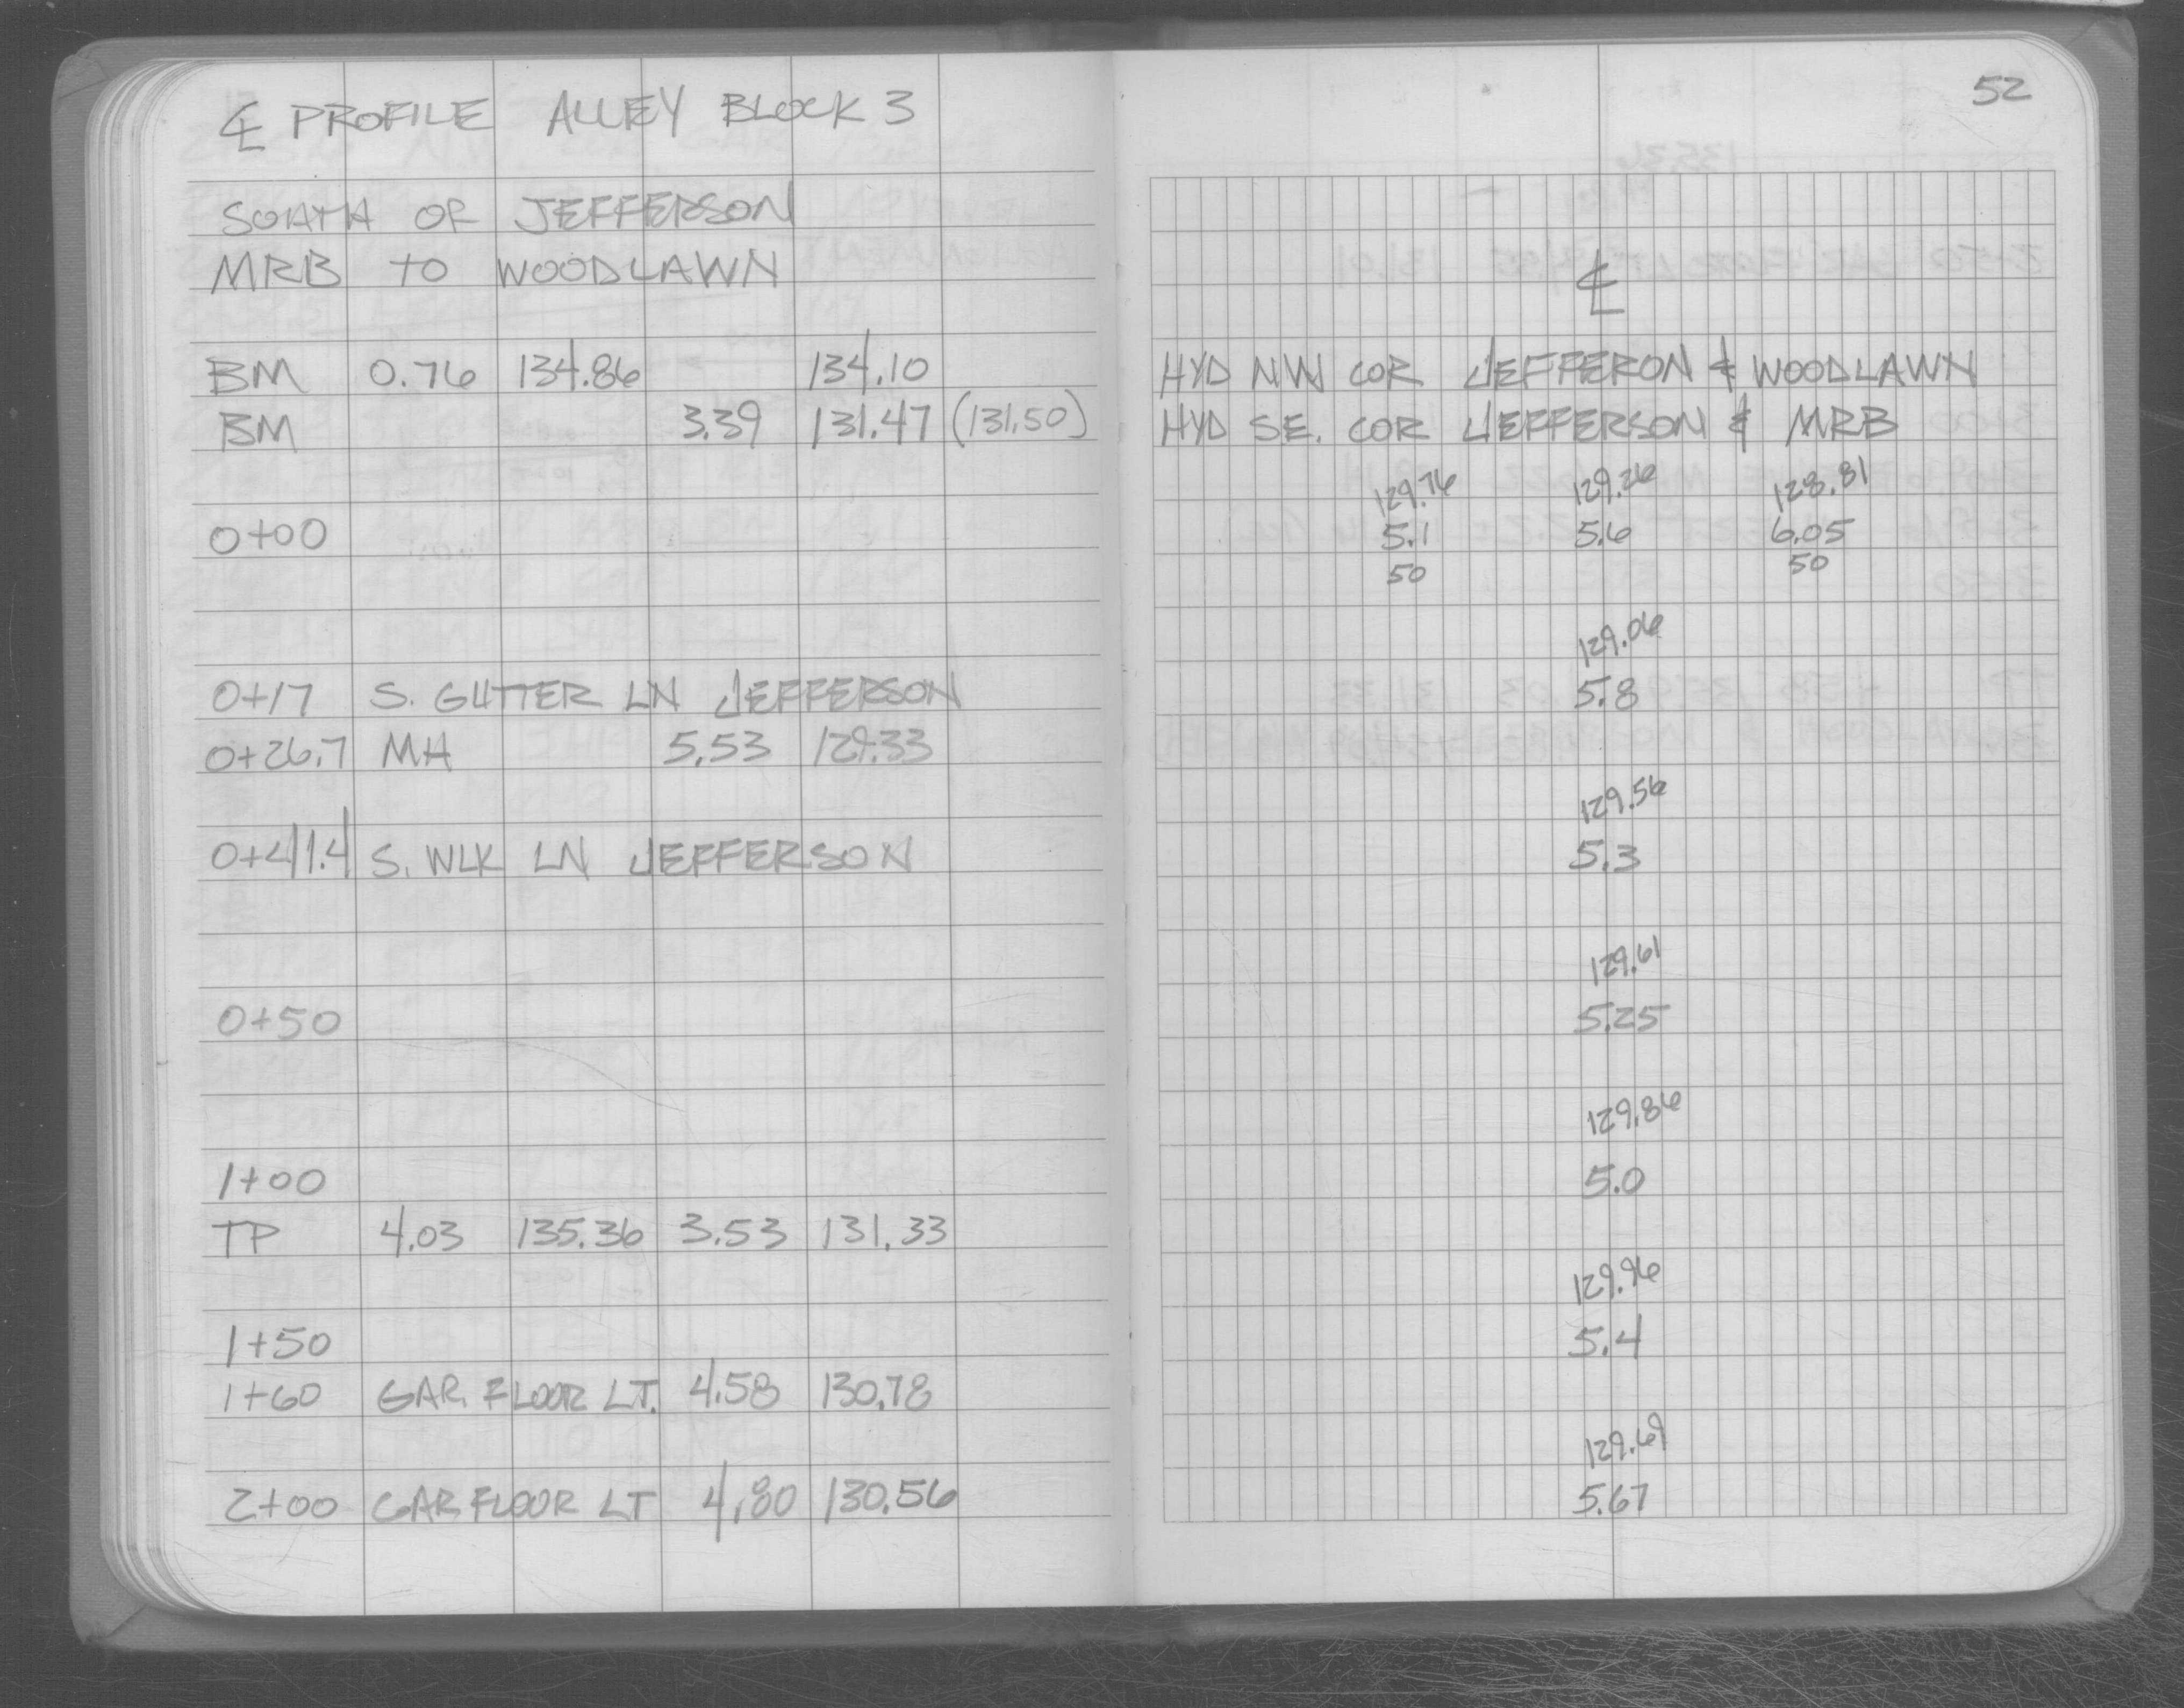 ℄ PROFILE ALLEY BLOCK 3
SOUTH OF JEFFERSON
MRB TO WOODLAWN
BM 0.76 134.86 134.10
BM 3.39 131.47 (131.50)
0+00
0+17 S. GUTTER LN JEFFERSON
0+26.7 MH 5.53 129.33
0+41.4 S. WLK LN JEFFERSON
0+50
1+00
TP 4.03 135.36 3.53 131.33
1+50
1+60 GAR. FLOOR LT. 4.58 130.78
2+00 GAR FLOOR LT 4.80 130.56
52
℄
HYD NW COR JEFFERON & WOODLAWN
HYD SE. COR JEFFERSON & MRB
129.76 129.26 128.81
5.1 5.6 6.05
50 50
129.06
5.8
129.56
5.3
129.61
5.25
129.86
5.0
129.96
5.4
129.69
5.67